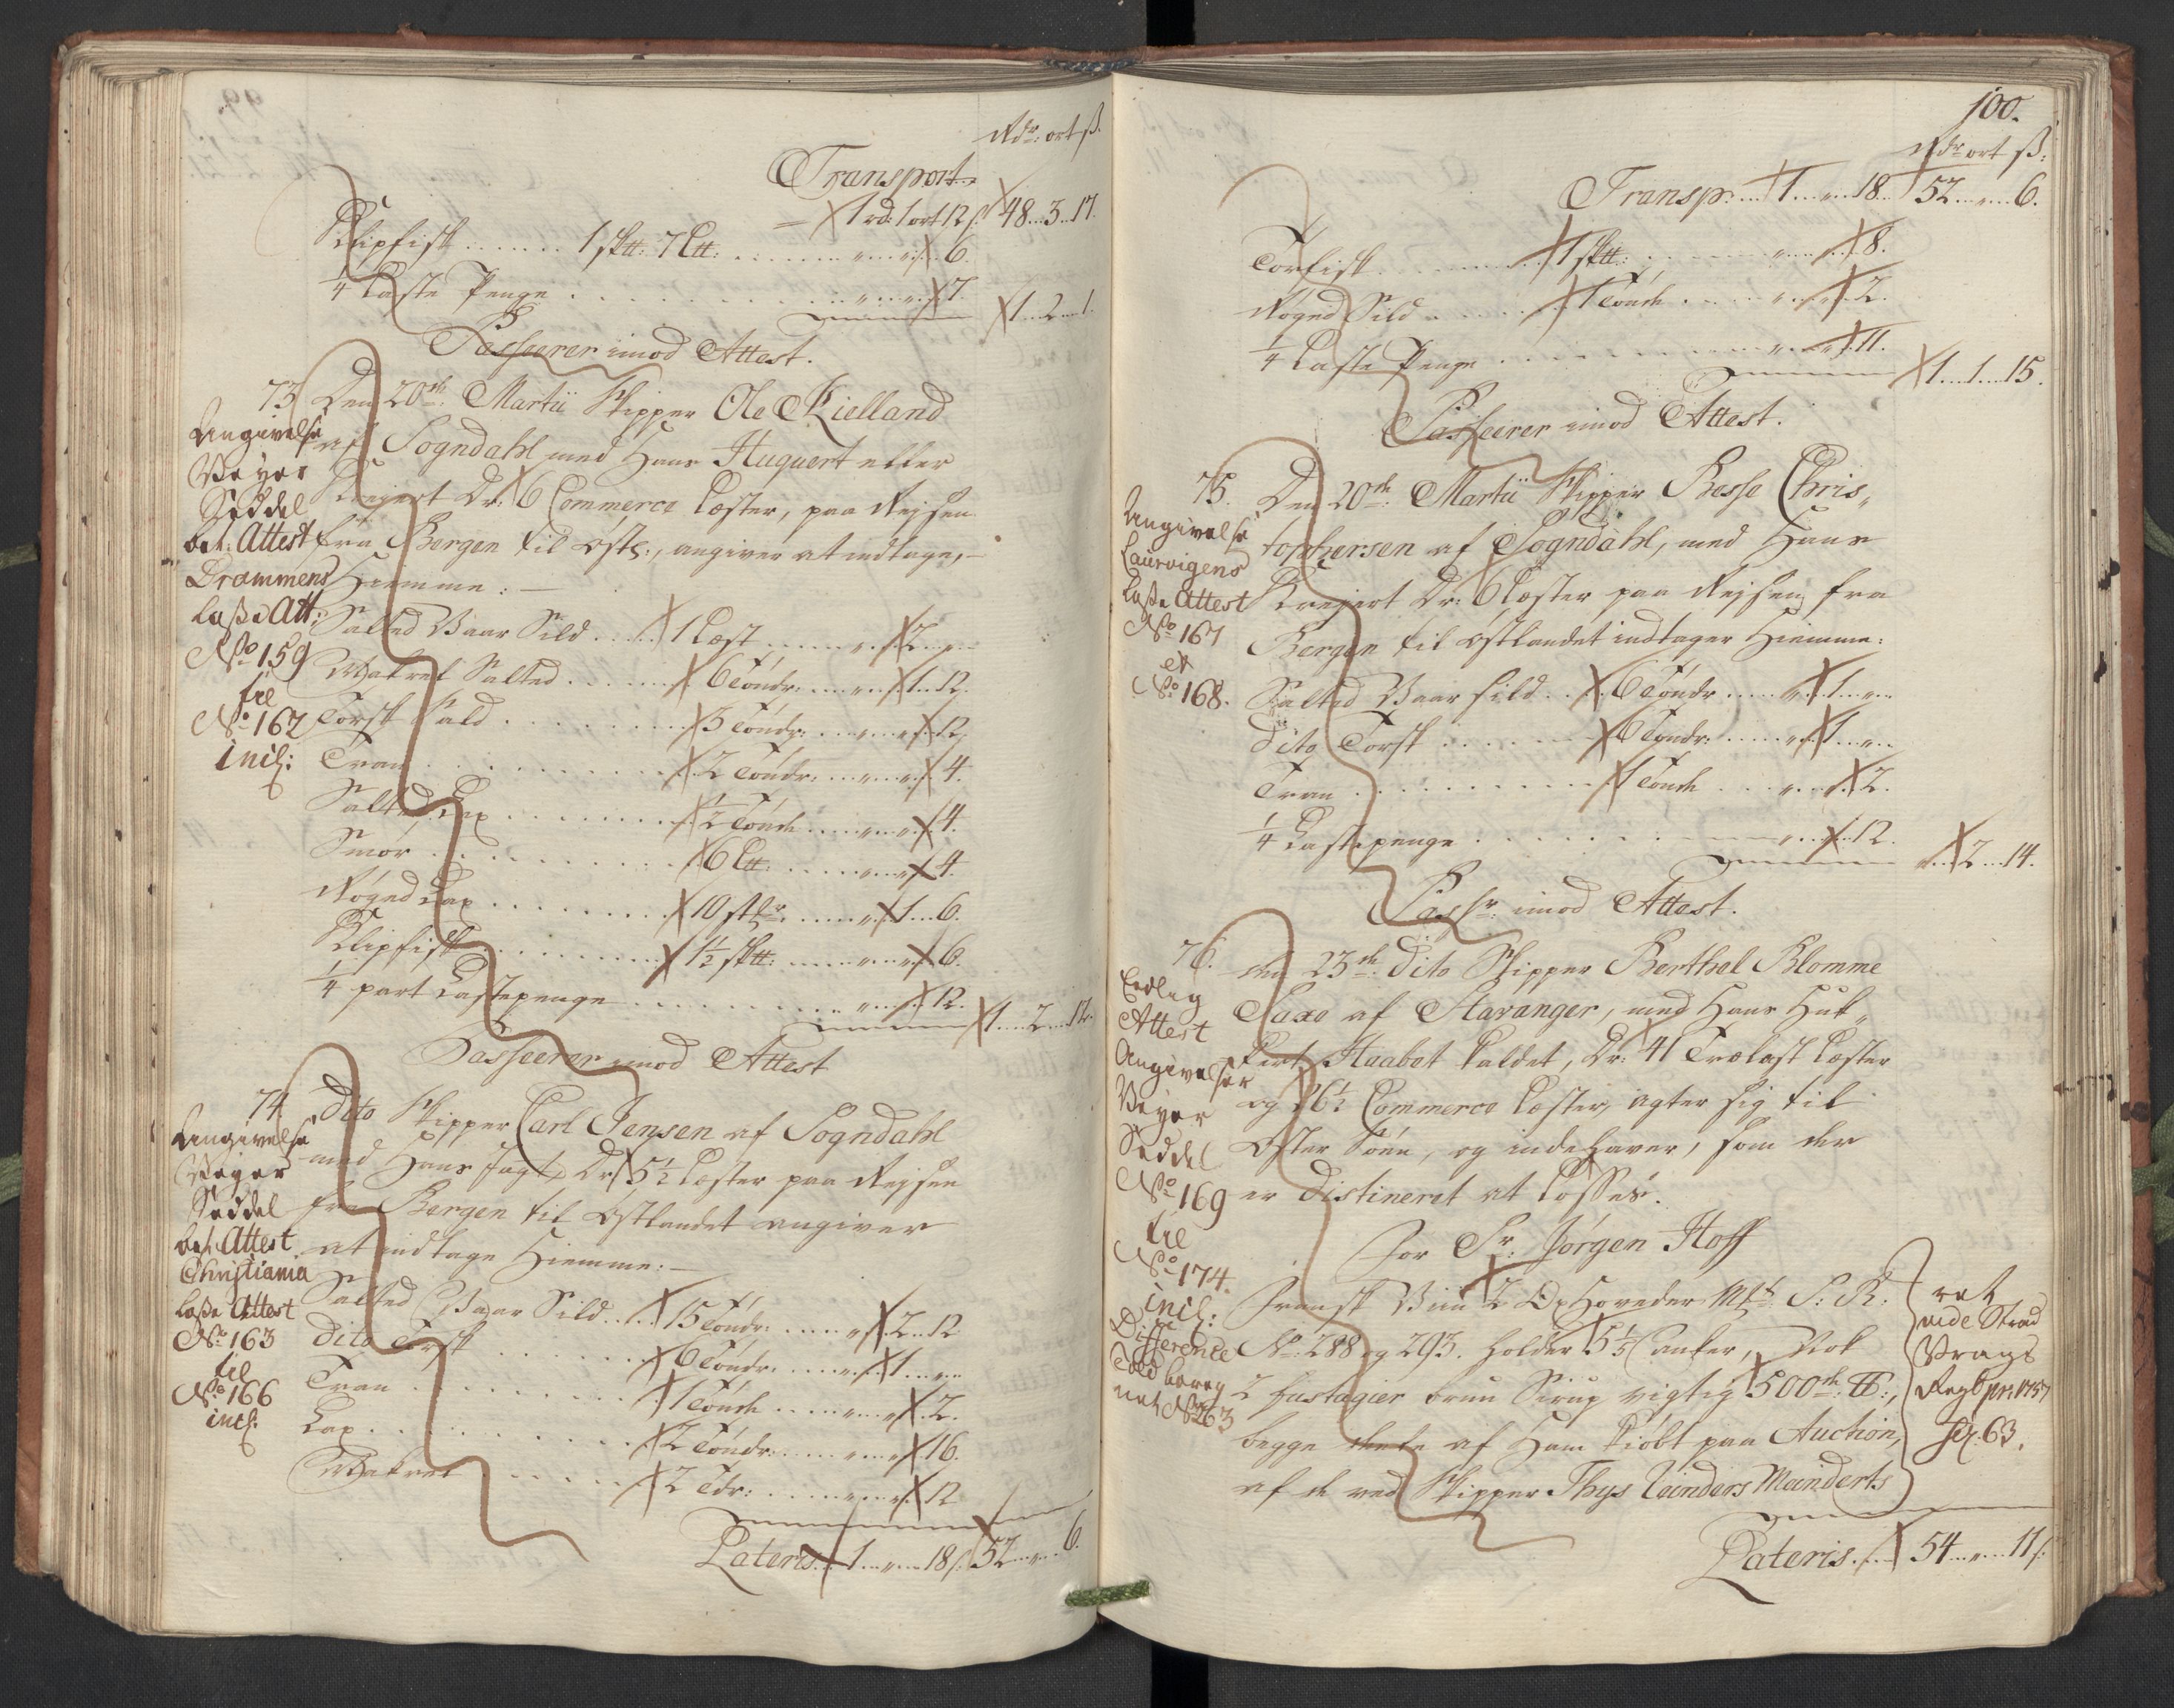 Rdr: ort ß.
Transport
1 rd: 1 ort 12 ß. 48. 3. 17.
Klipfisk ...... 1 sktt: 7 Ltt: ...... " " 6.
1/4 Læste Penge ...... " " 7. 1. 2. 1.
Passeerer imod Attest.
73 Den 20de Martii Skipper Ole Kielland
af Sogndahl med Hans Huquert eller
Kreyert Dr: 6 Commerce Læster, paa Reysen
fra Bergen til Østl:, angiver at indtage,
Hiemme:
Angivelse
Veyer
Seddel
bek: Attest
Drammens
Losse Att:
No 159
til
No 162
incl:
Salted Vaar Sild .... 1 Læst .... " 2 "
Makrel Salted .... 6 Tönder .... " 1. 12.
Torsk Sald .... 3 Töndr: .... " " 12.
Tran .... 2 Töndr: .... " " 4.
Salted Lax .... 1/2 Tönde .... " " 4.
Smør .... 6 Ltt: .... " " 4.
Røged Lax .... 10 stkr .... " 1. 6.
Klipfisk .... 1 1/2 sktt: .... " " 6.
1/4 part Lastepenge .... " " 12. 1. 2. 12.
Passeerer imod Attest
74 Dito Skipper Carl Jensen af Sogndahl
med Hans Jagt, Dr: 5 1/2 Læster paa Reysen
fra Bergen til Østlandet angiver
at indtage Hiemme:
Angivelse
Veyer
Seddel
bek: Attest
Christiania
Losse Attest
No 163
til
No 166
incl:
Salted Vaar Sild .... 15 Töndr: .... " 2. 12
Dito Torsk .... 6 Töndr: .... " 1. "
Tran .... 1 Tönde .... " " 2.
Lax .... 2 Töndr: .... " " 16.
Makrel .... 2 Tdr: .... " " 12
Lateris. 1. " 18 ß. 52. " 6.
100.
Rdr ort ß:
Transp: 1. " 18. 52. " 6.
Torfisk .... 1 sktt: .... " " 8.
Røged Sild .... 1 Tönde .... " " 2.
1/4 Laste Penge .... " " 11. 1. 1. 15.
Passeerer imod Attest.
75. Den 20de Martii Skipper Besse Chris„
tophersen af Sogndahl, med Hans
Kreyert Dr: 6 Læster paa Reysen fra
Bergen til Østlandet indtager Hiemme:
Angivelse
Laurvigens
Losse Attest
No 167
et
No 168.
Salted Vaar sild .... 6 Töndr .... " 1. "
Dito Torsk .... 6 Töndr: .... " 1. "
Tran .... 1 Tönde .... " " 2.
1/4 Lastepenge .... " " 12. " 2. 14.
Passr: imod Attest.
76. den 23de Dito Skipper Berthel Blomme
Saxe af Stavanger, med Hans Huk„
kert Haabet kaldet, Dr: 41 Trælast Læster
og 26 1/2 Commerce Læster, agter sig til
Øster Söen, og indehaver, som her
er Distineret at Losses.
Eedlig
Attest
Angivelser
Veyer
Seddel
No 169
til
No 174.
incl:
Difference
Told bereg
net No 263
For Sr: Jörgen Hoff
Fransk Viin 2 Oxhoveder Mkt: S: R:
No: 288 og 293. holder 5 1/5 Anker, Nok
2 fustagier bruun Sirup vigtig 500de tt:,
begge dele af Ham kiöbt paa Auction,
af de ved Skipper Thys Leinders Meinderts
ret
vide Strand
Vrags
Reg: pr: 1757
fol: 63.
Lateris. 54. " 11 ß: